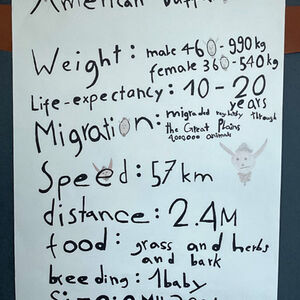 American buff
Weight: male 460-990kg
female 360-540kg
Life-expectancy: 10-20
years
Migration: migraded through
the Great Plains
animals
Speed: 57 km
distance: 2.4M
food: grass and herbs
and bark
breeding: 1 baby